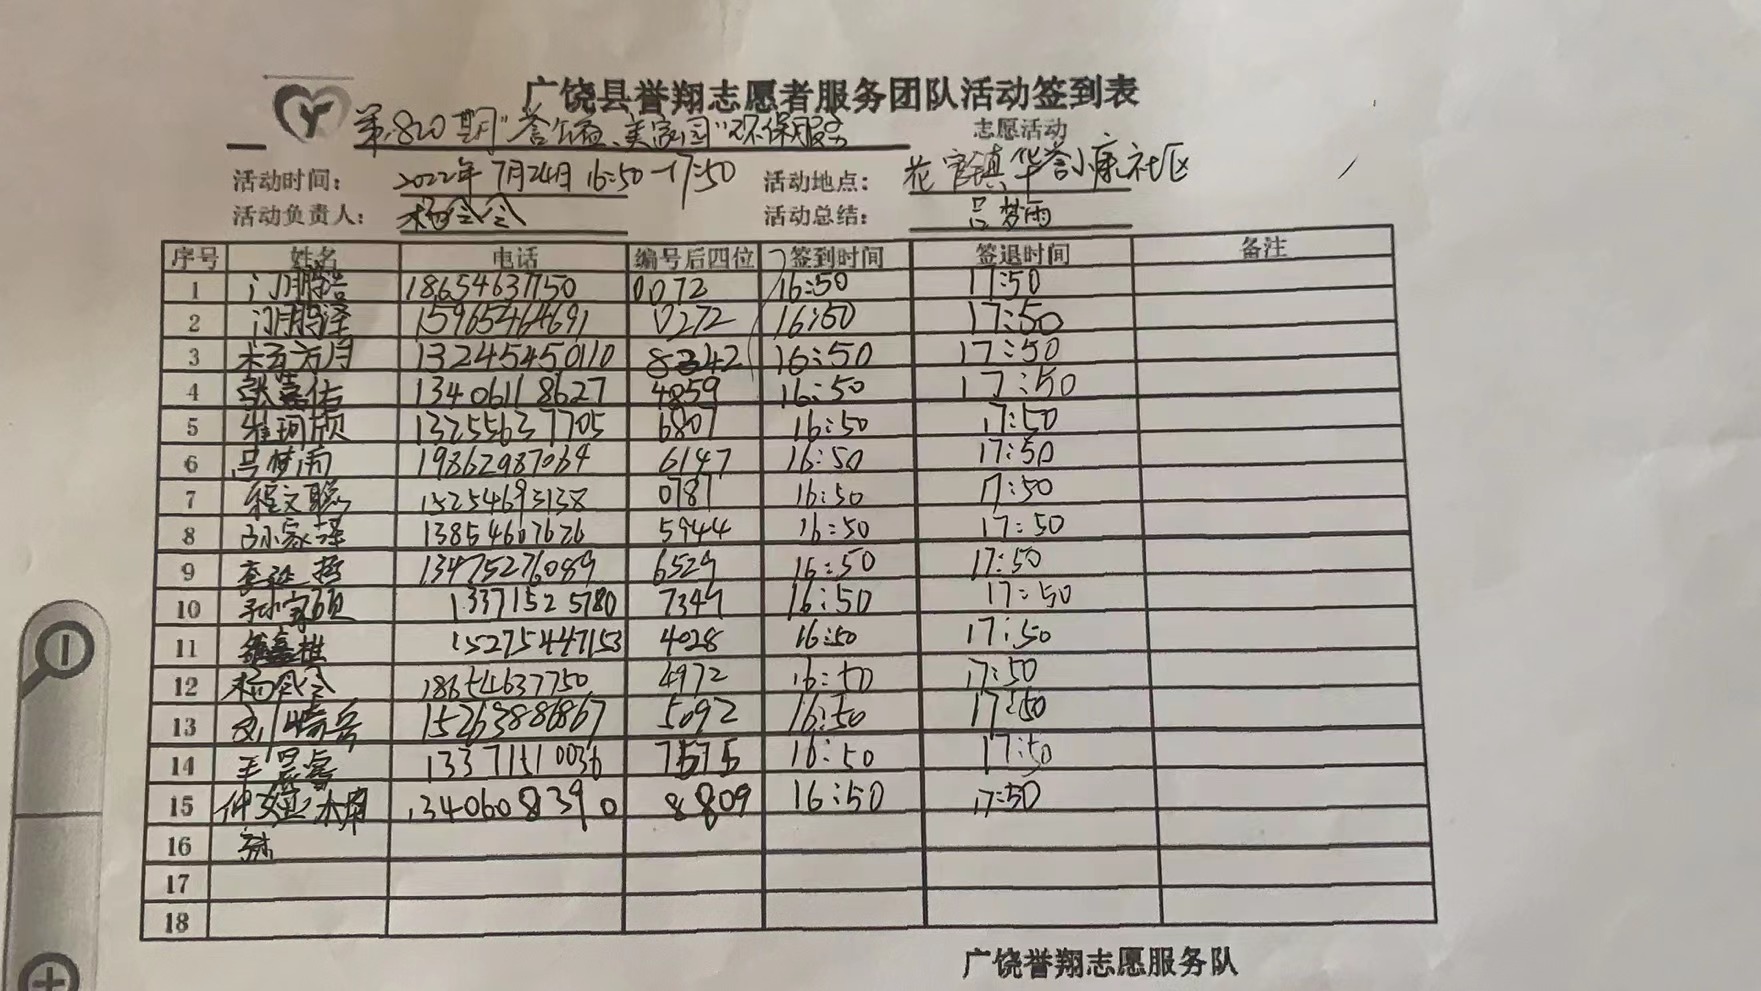 广饶县誉翔志愿者服务团队活动签到表
第820期"誉公益、美家园"环保服务 志愿活动
活动时间： 2022年7月24日16:50-17:50 活动地点： 花官镇华誉小康社区
活动负责人： 杨会会 活动总结： 吕梦雨
序号 姓名 电话 编号后四位 签到时间 签退时间 备注
1 18654637750 0072 16:50 17:50
2 15965464691 0272 16:50 17:50
3 13245450110 8342 16:50 17:50
4 张嘉佑 13406118627 4859 16:50 17:50
5 崔珂欣 13255637705 6807 16:50 17:50
6 吕梦雨 19862987064 6147 16:50 17:50
7 程文聪 15254693138 0787 16:50 17:50
8 孙家泽 13854607626 5944 16:50 17:50
9 13475276089 6529 16:50 17:50
10 孙家硕 13371525780 7347 16:50 17:50
11 15275447153 4028 16:50 17:50
12 杨会会 18654637750 4972 16:50 17:50
13 15263886867 5092 16:50 17:50
14 王晨睿 13371510036 7575 16:50 17:50
15 1340608390 8809 16:50 17:50
16
17
18
广饶誉翔志愿服务队